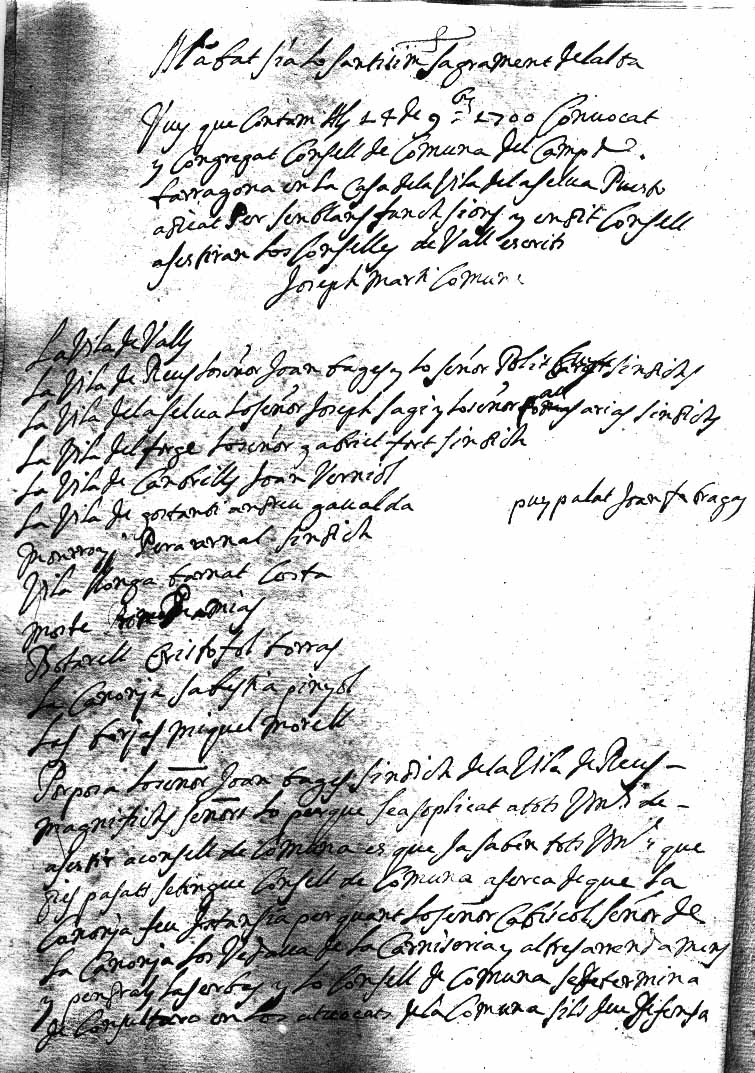 Alabat sia lo santisim sagrament del alta
Vuy que Contam Als 14 de 9bre 1700 Convocat
y Congregat Consell de Comuna del Camp de
tarragona en la Casa de la Vila de la selva Puesto
adicat Per senblans funchsions y en dit Consell
asestiran los Consellés de Vall escrits
Joseph Marti Comuna
La Vila de Valls
La Vila de Reus lo señor Joan bages y lo señor sindichs
La Vila de la selva lo señor Joseph sagi y lo señor arias sindichs
La Vila del forge lo señor gabriel fort sindich
La Vila de Canbrills Joan Vernis
La Vila de andreu gavalda
puy palat Joan fabragas
Monrroy Pera vernat sindich
Vila llonga barnat Costa
Morle
Botarell Cristofol torras
La Canonja sabastia pinyol
Les borjas Miquel Morell
Porposa lo señor Joan bages sindich de la Vila de Reus
Magnifichs señors lo perque sea soplicat a tots Vms de
asestir a consell de Comuna es que ja saben tots Vms que
dies pasats se tingue Consell de Comuna aserca de que la
Canonja feu per quant lo señor Cabiscol señor de
La Canonja los Vedava de la Carniseria y altres arrendamens
y pendrels las erbas y lo Consell de Comuna se determina
de Consultaro en los advocats de la Comuna sils deu difensa